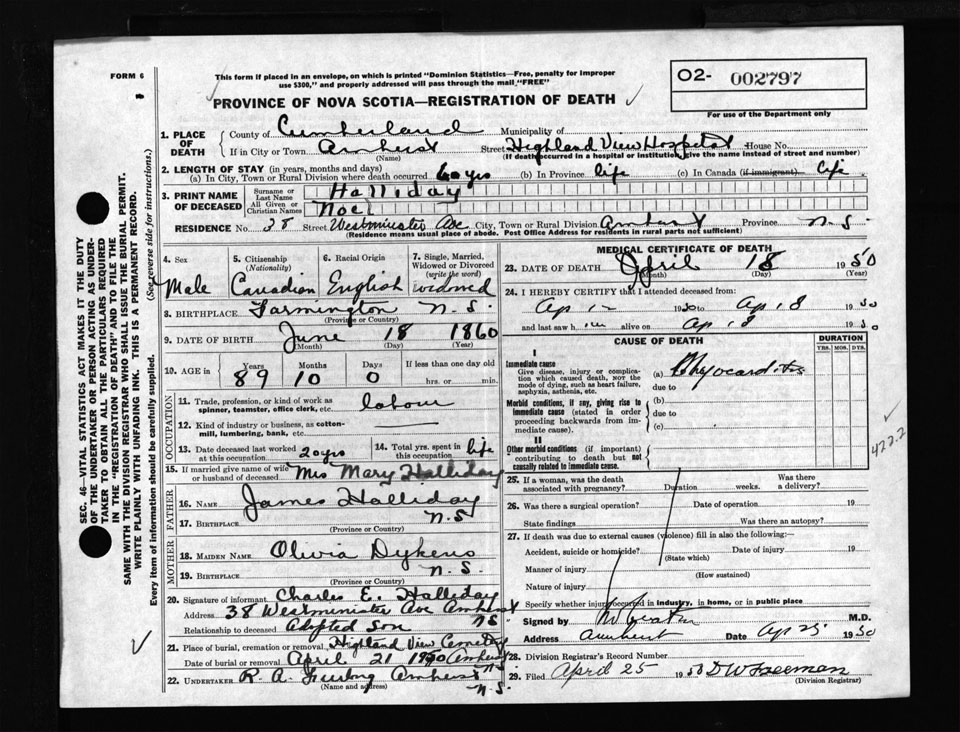 FORM 6
This form if placed in an envelope, on which is printed "Dominion Statistics—Free, penalty for improper
use $300," and properly addressed will pass through the mail "FREE"
PROVINCE OF NOVA SCOTIA—REGISTRATION OF DEATH
O2- 002797
For use of the Department only
SEC. 46—VITAL STATISTICS ACT MAKES IT THE DUTY
OF THE UNDERTAKER OR PERSON ACTING AS UNDER-
TAKER TO OBTAIN ALL THE PARTICULARS REQUIRED
IN THE "REGISTRATION OF DEATH" AND TO FILE THE
SAME WITH THE DIVISION REGISTRAR WHO SHALL ISSUE THE BURIAL PERMIT.
WRITE PLAINLY WITH UNFADING INK. THIS IS A PERMANENT RECORD.
Every item of information should be carefully supplied. (See reverse side for instructions.)
1. PLACE OF DEATH County of Cumberland Municipality of
If in City or Town Amherst Street Highland View Hospital House No.
(Name) (If death occurred in a hospital or institution, give the name instead of street and number)
2. LENGTH OF STAY (in years, months and days)
(a) In City, Town or Rural Division where death occurred 60 yrs (b) In Province life (c) In Canada (if immigrant) life
3. PRINT NAME OF DECEASED Surname or Last Name Halliday
All Given or Christian Names Noel
RESIDENCE No. 38 Street Westminster Ave City, Town or Rural Division Amherst Province N.S.
(Residence means usual place of abode. Post Office Address for residents in rural parts not sufficient)
4. Sex Male
5. Citizenship (Nationality) Canadian
6. Racial Origin English
7. Single, Married, Widowed or Divorced (write the word) widowed
8. BIRTHPLACE Farmington N.S.
(Province or Country)
9. DATE OF BIRTH June 18 1860
(Month) (Day) (Year)
10. AGE in Years 89 Months 10 Days 0 If less than one day old
hrs. or min.
OCCUPATION
11. Trade, profession, or kind of work as spinner, teamster, office clerk, etc. labour
12. Kind of industry or business, as cotton-mill, lumbering, bank, etc.
13. Date deceased last worked at this occupation 20 yrs
14. Total yrs. spent in this occupation life
15. If married give name of wife or husband of deceased Mrs Mary Halliday
FATHER
16. NAME James Halliday
17. BIRTHPLACE N.S
(Province or Country)
MOTHER
18. MAIDEN NAME Olivia Dykens
19. BIRTHPLACE N.S.
(Province or Country)
20. Signature of informant Charles E. Halliday
Address 38 Westminister Ave Amherst NS
Relationship to deceased Adopted son
21. Place of burial, cremation or removal Highland View Cemetery
Date of burial or removal April 21 1950 Amherst NS
22. UNDERTAKER R. A. Furlong Amherst N.S.
(Name and address)
MEDICAL CERTIFICATE OF DEATH
23. DATE OF DEATH April 18 1950
(Month) (Day) (Year)
24. I HEREBY CERTIFY that I attended deceased from:
Ap 1 1950 to Ap 18 1950
and last saw him alive on Ap 18 1950
CAUSE OF DEATH
DURATION
YRS. MOS. DYS.
I
Immediate cause
Give disease, injury or complication which caused death, not the mode of dying, such as heart failure, asphyxia, asthenia, etc.
(a) Myocarditis
due to
Morbid conditions, if any, giving rise to immediate cause (stated in order proceeding backwards from immediate cause).
(b)
due to
(c)
II
Other morbid conditions (if important) contributing to death but not causally related to immediate cause.
422.2
25. If a woman, was the death associated with pregnancy? Duration weeks. Was there a delivery?
26. Was there a surgical operation? Date of operation 19
State findings Was there an autopsy?
27. If death was due to external causes (violence) fill in also the following:—
Accident, suicide or homicide? Date of injury 19
(State which)
Manner of injury
(How sustained)
Nature of injury
Specify whether injury occurred in industry, in home, or in public place
Signed by M.D.
Address Amherst Date Ap 25 1950
28. Division Registrar's Record Number
29. Filed April 25 1950 D W Freeman
(Division Registrar)